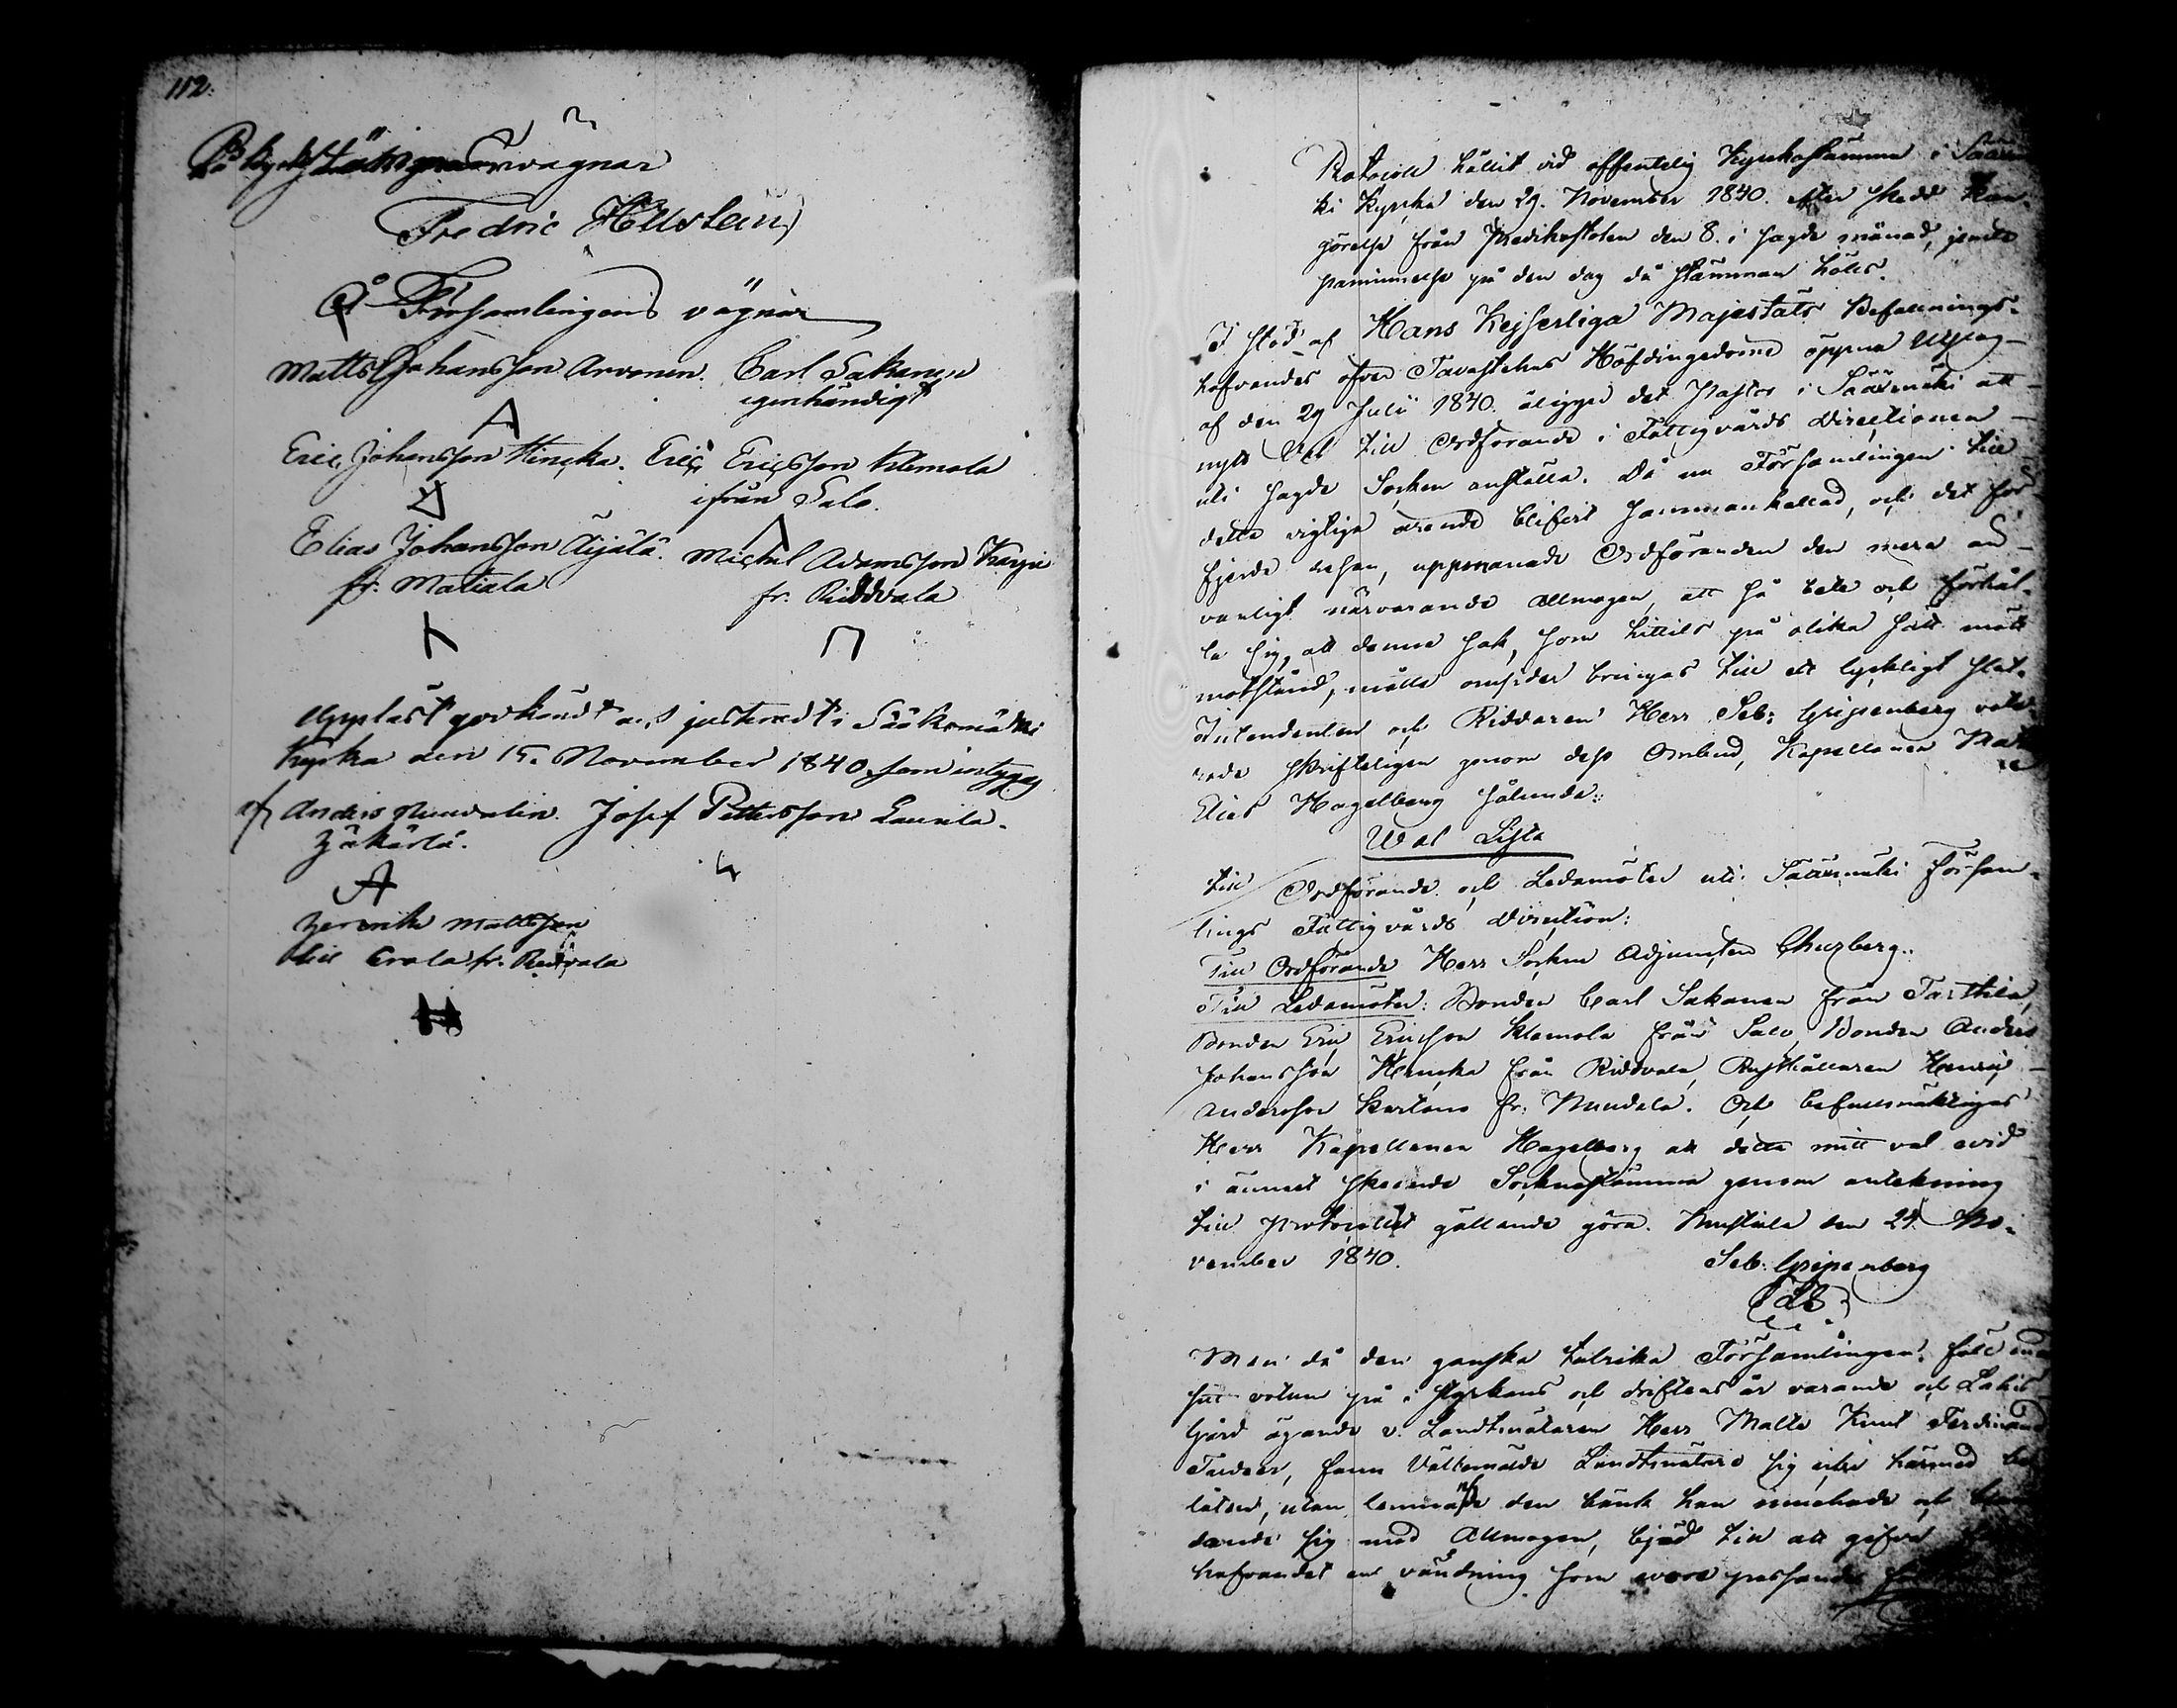 112.
vägnar
Fredric Hellstein
På Församlingens vägnar
Matts Johansson Arvonen. Carl Sakanen
egenhändigt
Eric Johansson Hincka. Eric Ericsson Klemola
ifrån Salo.
Elias Johansson Äijälä. Michel Adamsson Karju
fr. Matiala
fr. Riddvala
Uppläst godkändt och justeradt i Sääksmäki
Kyrka den 15. November 1840, som intygas
af Anders Josef Pettersson Laurila.
Mattsson
Erola fr. Ridvala
Protocoll hållit vid offentelig Kyrkostämma i Sääxmä-
ki Kyrka den 29. November 1840. efter skedd kun-
görelse från Predikostolen den 8. i sagde månad, jemte
påminnelse på den dag då stämman hölls.
I stöd af Hans Kejserliga Majestäts Befallnings-
hafvandes öfver Tavastehus Höfdingedöme öppna
af den 29 Julii 1840. åligger det Pastor i Sääxmäki att
nytt Val till Ordförande i Fattigvårds Directionen
uti sagde Socken anställa. Då nu Församlingen till
detta vigtiga ärende blifvit sammankallad, och det för
fjerde resan, uppmanade Ordföranden den mera än
vanligt närvarande Allmogen, att så bete och förhål-
la sig, att denna sak, som hittils på olika sätt mött
motstånd, måtte omsider bringas till ett lyckligt slut.
Intendenten och Riddaren Herr Seb: Gripenberg vote-
rade skrifteligen genom dess Ombud, Kapellanen
Elias Hagelberg sålunda:
Val Lista
till Ordförande och Ledamöter uti Sääxmäki Försam-
lings Fattigvårds Direction:
Till Ordförande Herr Sockne Adjuncten Churberg.
Till Ledamöter: Bonden Carl Sakanen från Tarttila,
Bonden Eric Ericsson Klemola från Salo, Bonden Anders
Johansson Hincka från Riddvala, Rusthållaren Henric
Andersson fr. Och befullmäktigas
Herr Kapellanen Hagelberg att detta mitt val vid
i ämnet skeende Socknestämma genom anteckning
till Protocollet gällande göra. den 24 No-
vember 1840.
Seb: Gripenberg
(LS.)
Men då den ganska talrika Församlingen
sitt votum på i styrkans och driftens år varande och
Gård ägande v. Landtmätaren Herr Malte Knut Ferdinand
fann Välbemälde Landtmätare sig icke härmed
låten, utan lemnade den bänk han innehade och
sig med Allmogen, bjöd till att gifva
hafvandet en vändning som vore passande